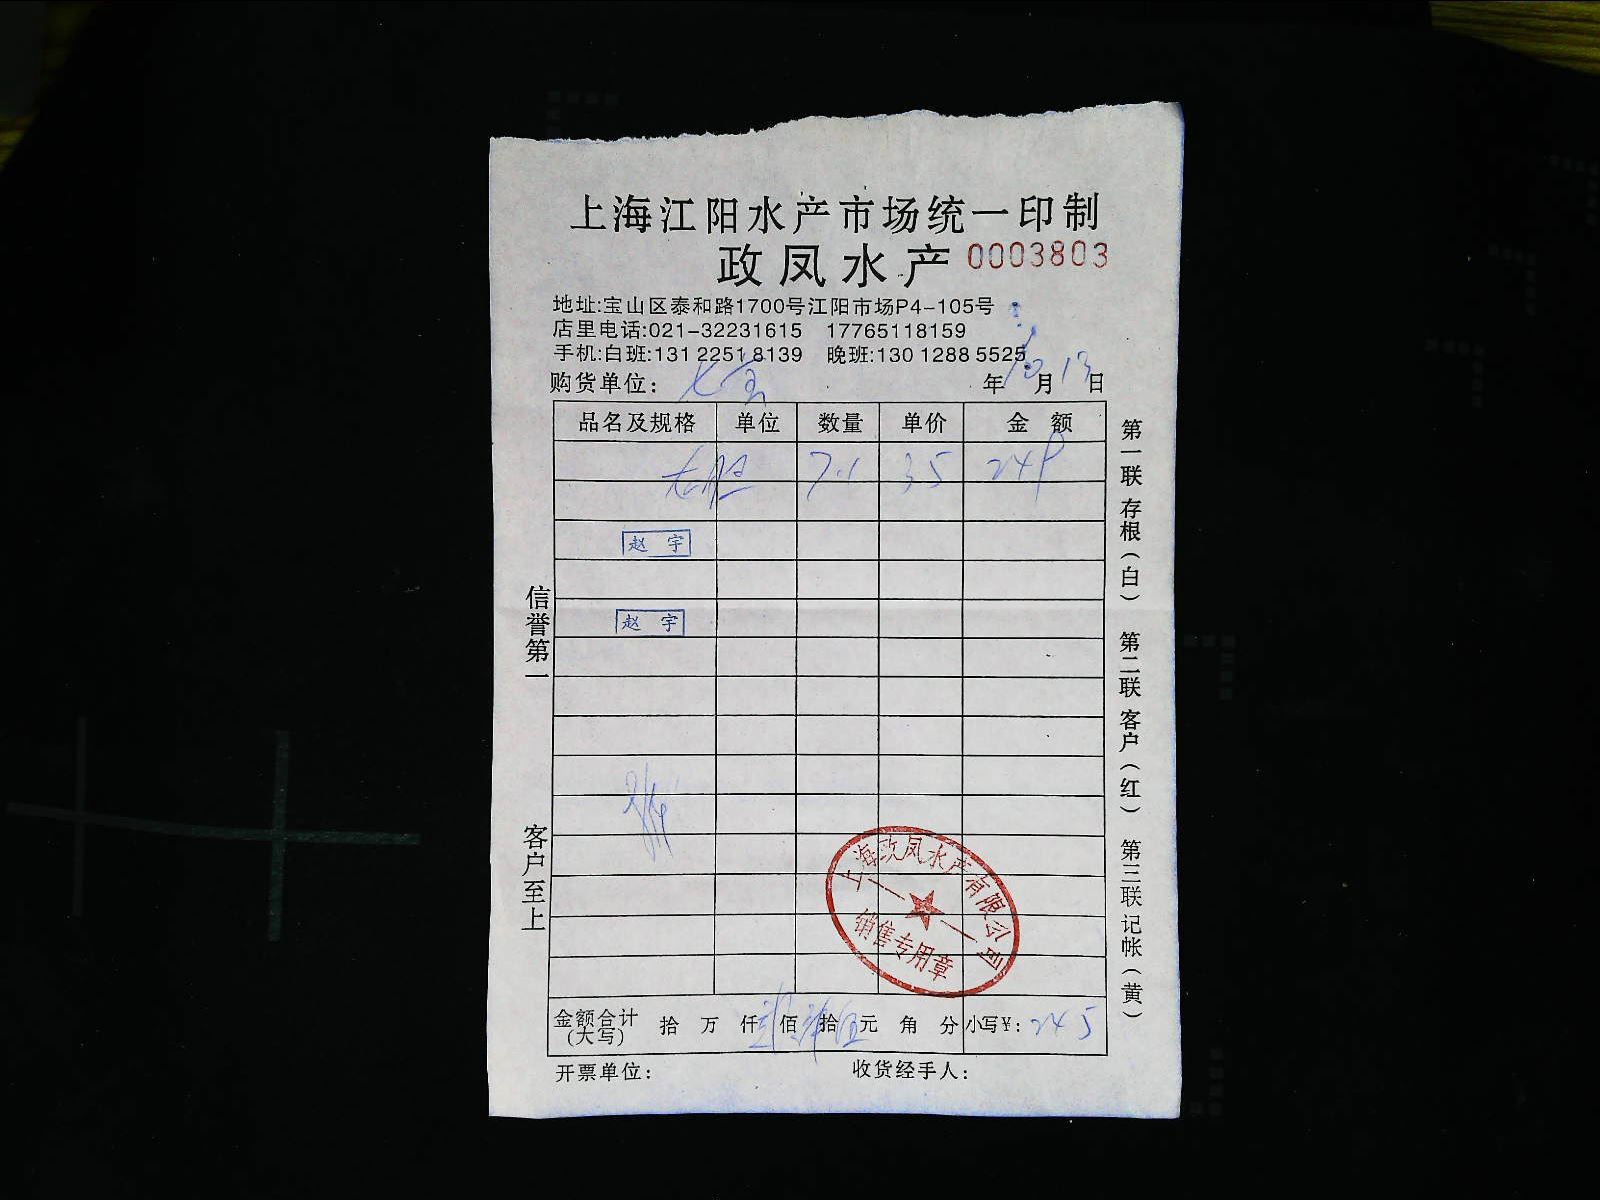 上海江阳水产市场统一印制
政凤水产 0003803
地址:宝山区泰和路1700号江阳市场P4-105号
店里电话:021-32231615 17765118159
手机:白班:131 2251 8139 晚班:130 1288 5525
购货单位: 七宝 年10月13日
品名及规格 单位 数量 单价 金 额
7.1 35 248
赵 宇
赵 宇
信誉第一
客户至上
第一联 存根(白) 第二联 客户(红) 第三联 记帐(黄)
上海政凤水产有限公司
销售专用章
金额合计(大写) 拾 万 仟 贰佰 肆拾 伍元 角 分 小写¥: 245
开票单位: 收货经手人: